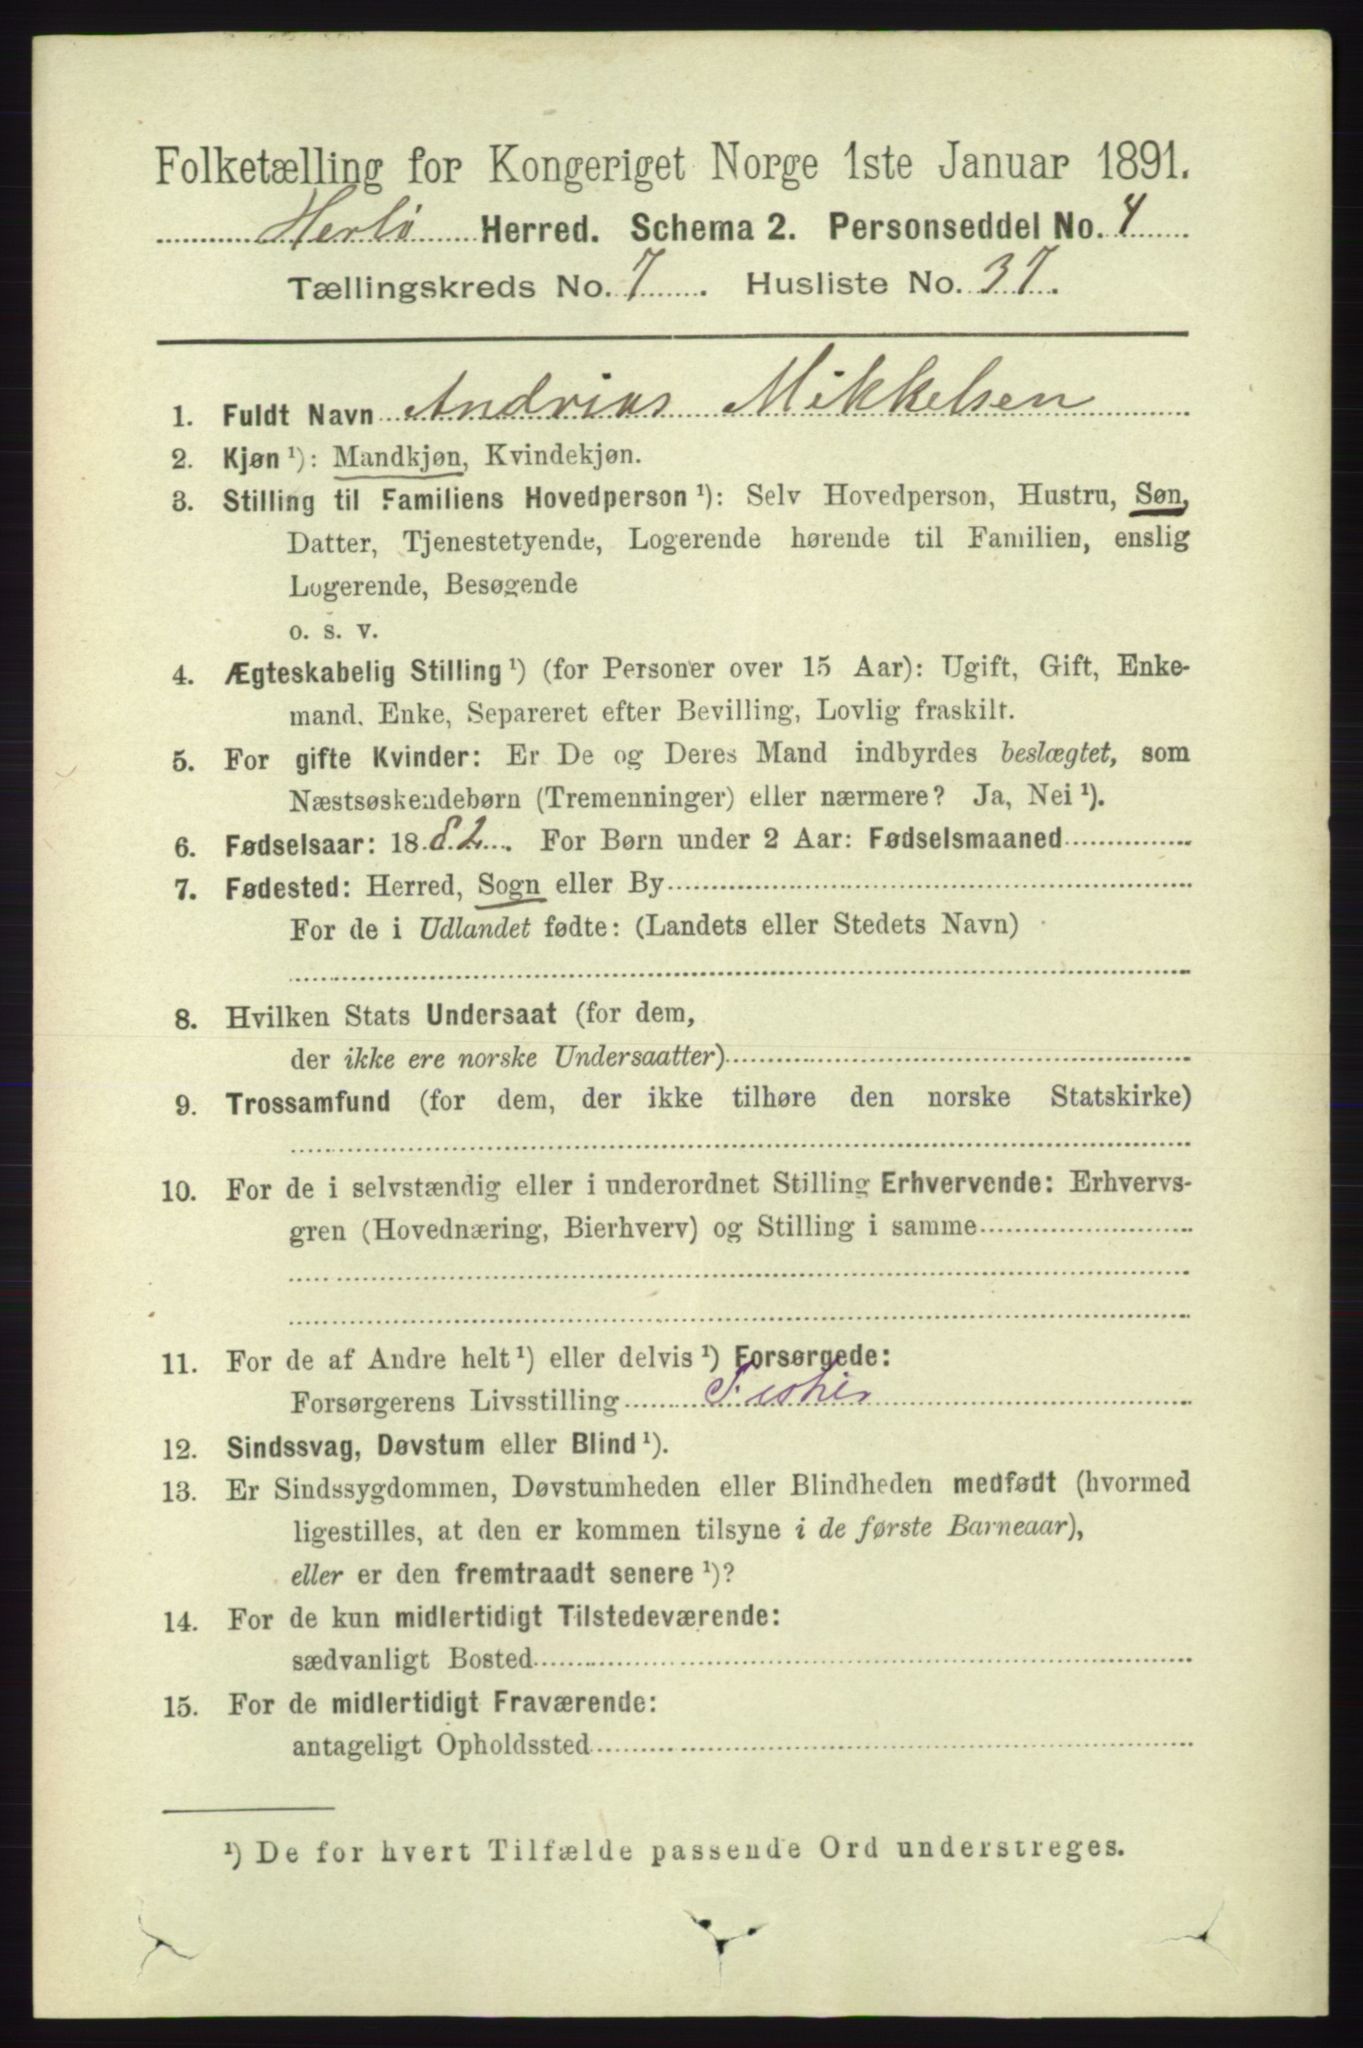 Folketælling for Kongeriget Norge 1ste Januar 1891.
Herlø Herred. Schema 2. Personseddel No. 4
Tællingskreds No. 7. Husliste No. 37.
1. Fuldt Navn Andrias Mikkelsen
2. Kjøn ¹): Mandkjøn, Kvindekjøn.
3. Stilling til Familiens Hovedperson ¹): Selv Hovedperson, Hustru, Søn,
Datter, Tjenestetyende, Logerende hørende til Familien, enslig
Logerende, Besøgende
o. s. v.
4. Ægteskabelig Stilling ¹) (for Personer over 15 Aar): Ugift, Gift, Enke-
mand. Enke, Separeret efter Bevilling, Lovlig fraskilt.
5. For gifte Kvinder: Er De og Deres Mand indbyrdes beslægtet, som
Næstsøskendebørn (Tremenninger) eller nærmere? Ja, Nei ¹).
6. Fødselsaar: 1882. For Børn under 2 Aar: Fødselsmaaned
7. Fødested: Herred, Sogn eller By
For de i Udlandet fødte: (Landets eller Stedets Navn)
8. Hvilken Stats Undersaat (for dem,
der ikke ere norske Undersaatter)
9. Trossamfund (for dem, der ikke tilhøre den norske Statskirke)
10. For de i selvstændig eller i underordnet Stilling Erhvervende: Erhvervs-
gren (Hovednæring, Bierhverv) og Stilling i samme
11. For de af Andre helt ¹) eller delvis ¹) Forsørgede:
Forsørgerens Livsstilling Fisker
12. Sindssvag, Døvstum eller Blind ¹).
13. Er Sindssygdommen, Døvstumheden eller Blindheden medfødt (hvormed
ligestilles, at den er kommen tilsyne i de første Barneaar),
eller er den fremtraadt senere ¹)?
14. For de kun midlertidigt Tilstedeværende:
sædvanligt Bosted
15. For de midlertidigt Fraværende:
antageligt Opholdssted
¹) De for hvert Tilfælde passende Ord understreges.